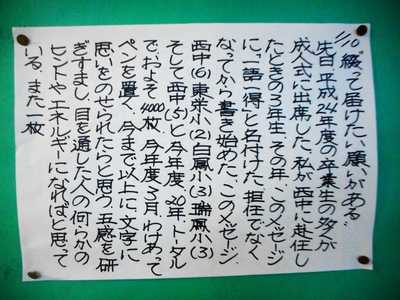 1/10 "綴って届けたい願いがある"
先日、平成24年度の卒業生の多くが
成人式に出席した。私が西中に赴任し
たときの3年生。その年、このメッセージ
に、"一語一得"と名付けた。担任でなく
なってから書き始めた、このメッセージ。
西中(6)東栄小(2)白鳳小(3)瑞鳳小(3)
そして西中(5)と今年度、20年トータル
で、およそ4000枚。今年度3月、わけあって
ペンを置く。今まで以上に、文字に
思いをのせられたらと思う。五感を研
ぎすまし、目を通した人の何らかの
ヒントやエネルギーになればと思って
いる。また一枚